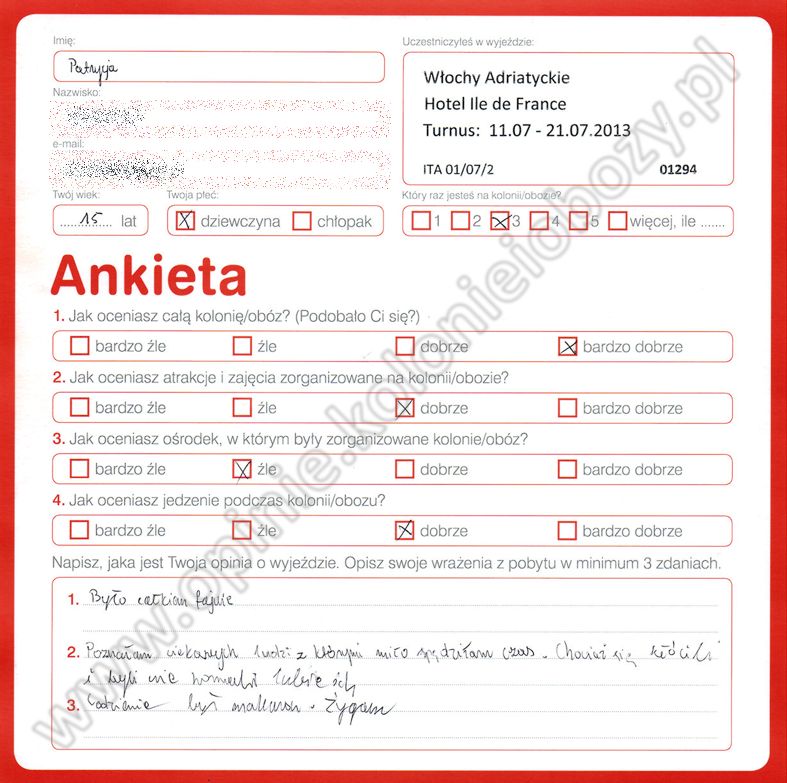 Imię:
Patrycja
Nazwisko:
e-mail:
Twój wiek:
15 lat
Twoja płeć:
dziewczyna chłopak
Uczestniczyłeś w wyjeździe:
Włochy Adriatyckie
Hotel Ile de France
Turnus: 11.07 - 21.07.2013
ITA 01/07/2 01294
Który raz jesteś na kolonii/obozie?
1 2 3 4 5 więcej, ile .......
Ankieta
1. Jak oceniasz całą kolonię/obóz? (Podobało Ci się?)
bardzo źle źle dobrze bardzo dobrze
2. Jak oceniasz atrakcje i zajęcia zorganizowane na kolonii/obozie?
bardzo źle źle dobrze bardzo dobrze
3. Jak oceniasz ośrodek, w którym były zorganizowane kolonie/obóz?
bardzo źle źle dobrze bardzo dobrze
4. Jak oceniasz jedzenie podczas kolonii/obozu?
bardzo źle źle dobrze bardzo dobrze
Napisz, jaka jest Twoja opinia o wyjeździe. Opisz swoje wrażenia z pobytu w minimum 3 zdaniach.
1. Było całkiem fajnie
2. Poznałam ciekawych ludzi z którymi miło spędziłam czas. Chociaż się kłócili
i byli nie lubię ich
3. Codziennie był makaron.
www.opinie.kolonieiobozy.pl